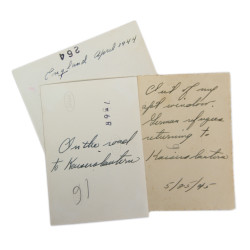 264
England April 1944
1268
On the road
to Kaiserslautern
91
Out of my
apt window.
German refugees
returning to
Kaiserslautern
5/05/45